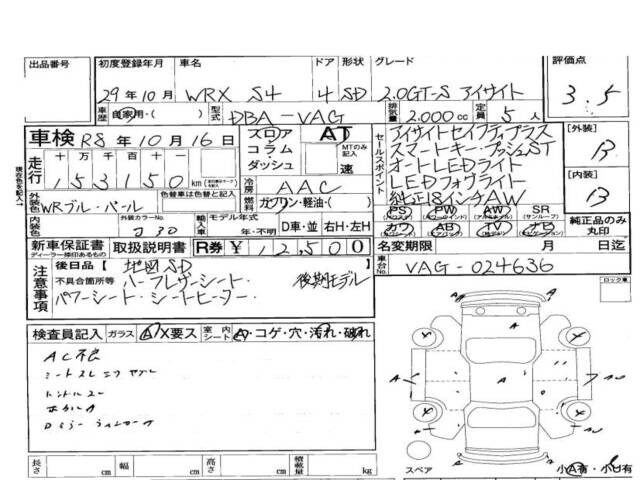 出品番号 初度登録年月 車名 ドア 形状 グレード 評価点
29年10月 WRX S4 4 SD 2.0GT-S アイサイト 3.5
車歴 自家用・( ) 型式 DBA-VAG 排気量 2.000cc 定員 5人
車検 R8年10月16日 フロア AT
コラム MTのみ記入
ダッシュ 速
セールスポイント
アイサイトセイフティプラス
スマートキー・プッシュST
オートLEDライト
LEDフォグライト
純正18インチAW
[外装] B
[内装] B
現在色を記入
走行 十 万 千 百 十 一
153150 km
冷房 AAC
外装色 WRブル・パール 色替車は色替と記入
燃料 ガソリン・軽油・( )
PS パワステ PW パワーウィンドウ AW アルミホイル SR (サンルーフ)
カワ AB (エアバッグ) TV ナビ
純正品のみ丸印
内装色 外装カラーNo. J30 輸入車 モデル年式 年・不明 D車・並 右H・左H
新車保証書 ディーラー捺印あるもの 取扱説明書 R券 ¥12,500
名変期限 月 日迄
注意事項
後日品【 地図SD 】
不具合箇所等 ハーフレザーシート・ 後期モデル
パワーシート・シートヒーター・
車台No. VAG-024636
ロック車
検査員記入 ガラス A X要ス 室内シート A・コゲ・穴・汚れ・破れ
AC不良
A
A
A
A
スペア 小A有・小U有
長さ cm 幅 cm 高さ cm 積載量 kg